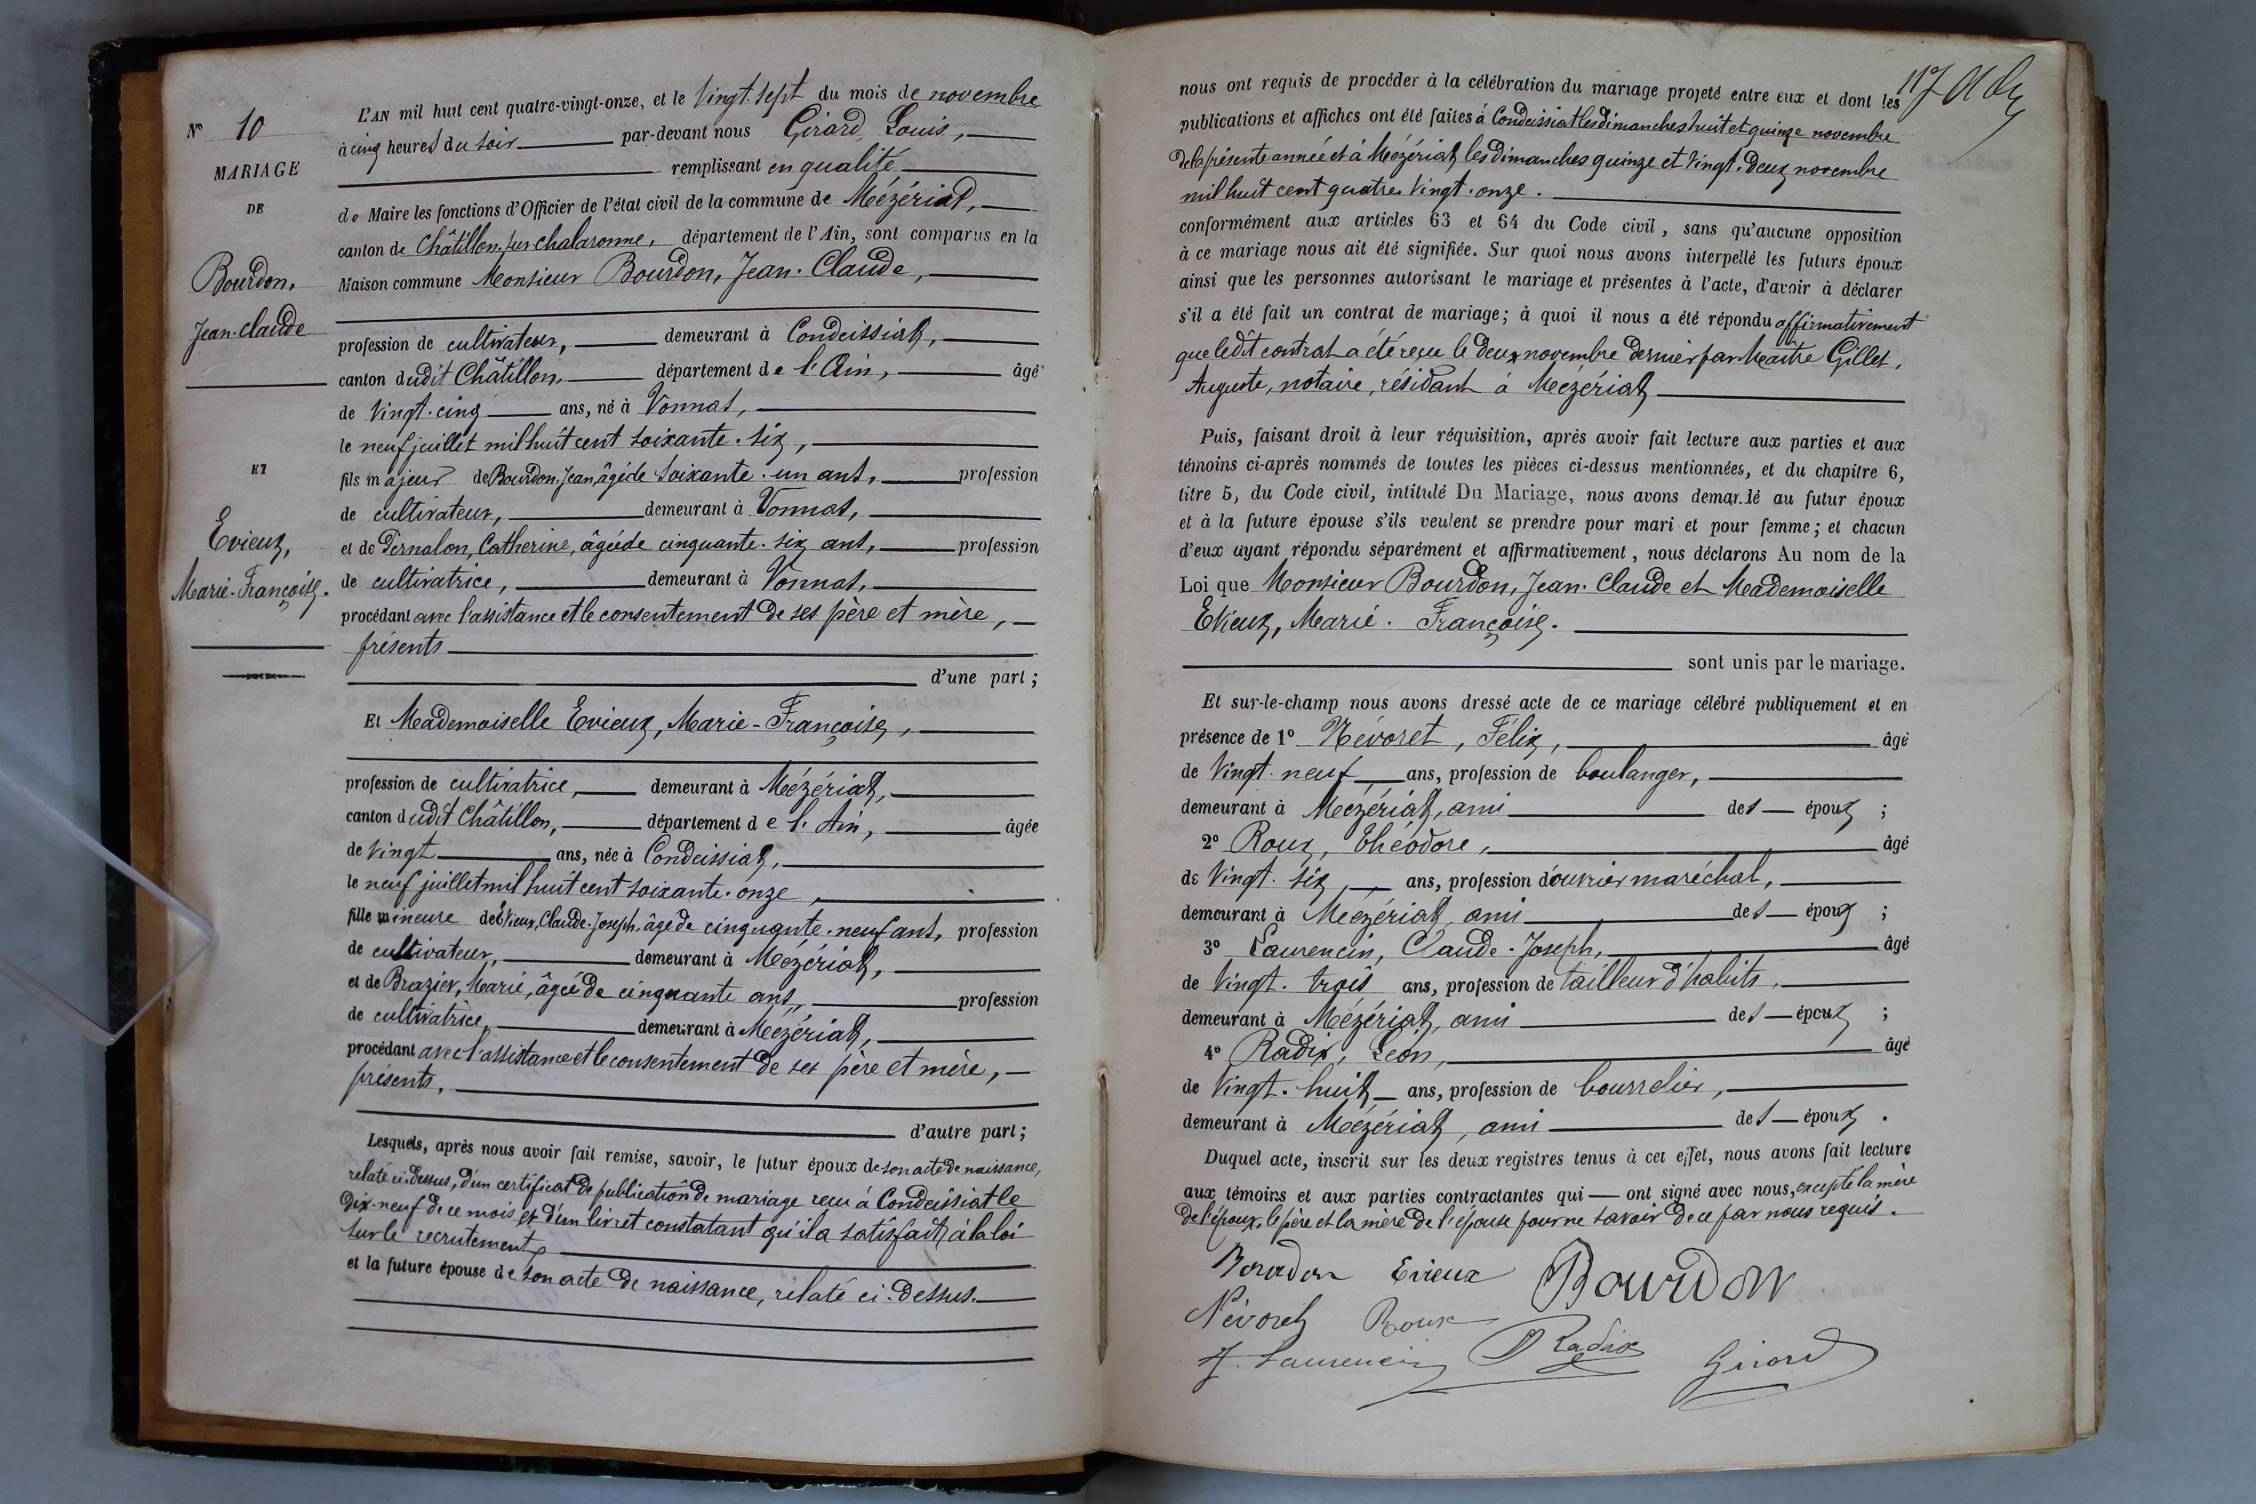 N° 10
MARIAGE
DE
Bourdon,
Jean-Claude
ET
Evieux,
Marie-Françoise.
L'AN mil huit cent quatre-vingt-onze, et le vingt-sept du mois de novembre
à cinq heures du soir par-devant nous Girard, Louis,
remplissant en qualité
de Maire les fonctions d'Officier de l'état civil de la commune de Mézériat,
canton de Châtillon-sur-chalaronne, département de l'Ain, sont comparus en la
Maison commune Monsieur Bourdon, Jean-Claude,
profession de cultivateur, demeurant à Condeissiat,
canton dudit Châtillon, département de l'Ain, âgé
de vingt-cinq ans, né à Vonnas,
le neuf juillet mil huit cent soixante-six,
fils majeur de Bourdon, Jean, âgé de soixante-un ans, profession
de cultivateur, demeurant à Vonnas,
et de Pernalon, Catherine, âgée de cinquante-six ans, profession
de cultivatrice, demeurant à Vonnas,
procédant avec l'assistance et le consentement de ses père et mère,
présents
d'une part;
Et Mademoiselle Evieux, Marie-Françoise,
profession de cultivatrice, demeurant à Mézériat,
canton dudit Châtillon, département de l'Ain, âgée
de vingt ans, née à Condeissiat,
le neuf juillet mil huit cent soixante-onze,
fille mineure de Evieux, Claude-Joseph, âgé de cinquante-neuf ans, profession
de cultivateur, demeurant à Mézériat,
et de Brazier, Marie, âgée de cinquante ans, profession
de cultivatrice, demeurant à Mézériat,
procédant avec l'assistance et le consentement de ses père et mère,
présents,
d'autre part;
Lesquels, après nous avoir fait remise, savoir, le futur époux de son acte de naissance,
relaté ci-dessus, d'un certificat de publication de mariage reçu à Condeissiat le
dix-neuf de ce mois et d'un livret constatant qu'il a satisfait à la loi
sur le recrutement,
et la future épouse de son acte de naissance, relaté ci-dessus.
nous ont requis de procéder à la célébration du mariage projeté entre eux et dont les
publications et affiches ont été faites à Condeissiat les dimanches huit et quinze novembre
de la présente année et à Mézériat les dimanches quinze et vingt-deux novembre
mil huit cent quatre-vingt-onze.
conformément aux articles 63 et 64 du Code civil, sans qu'aucune opposition
à ce mariage nous ait été signifiée. Sur quoi nous avons interpellé les futurs époux
ainsi que les personnes autorisant le mariage et présentes à l'acte, d'avoir à déclarer
s'il a été fait un contrat de mariage; à quoi il nous a été répondu affirmativement
que ledit contrat a été reçu le deux novembre dernier par Maître Gillet,
Auguste, notaire, résidant à Mézériat
Puis, faisant droit à leur réquisition, après avoir fait lecture aux parties et aux
témoins ci-après nommés de toutes les pièces ci-dessus mentionnées, et du chapitre 6,
titre 5, du Code civil, intitulé Du Mariage, nous avons demandé au futur époux
et à la future épouse s'ils veulent se prendre pour mari et pour femme; et chacun
d'eux ayant répondu séparément et affirmativement, nous déclarons Au nom de la
Loi que Monsieur Bourdon, Jean-Claude et Mademoiselle
Evieux, Marie-Françoise.
sont unis par le mariage.
Et sur-le-champ nous avons dressé acte de ce mariage célébré publiquement et en
présence de 1° Névoret, Félix, âgé
de vingt-neuf ans, profession de boulanger,
demeurant à Mézériat, ami des époux;
2° Roux, Théodore, âgé
de vingt-six, ans, profession d'ouvrier maréchal,
demeurant à Mézériat, ami des époux;
3° Laurencin, Claude-Joseph, âgé
de vingt-trois ans, profession de tailleur d'habits,
demeurant à Mézériat, ami des époux;
4° Radix, Léon, âgé
de vingt-huit ans, profession de bourrelier,
demeurant à Mézériat, ami des époux.
Duquel acte, inscrit sur les deux registres tenus à cet effet, nous avons fait lecture
aux témoins et aux parties contractantes qui ont signé avec nous, excepté la mère
de l'époux, le père et la mère de l'épouse pour ne savoir de ce par nous requis.
Bourdon Evieux Bourdon
Névoret Roux
J. Laurencin Radix Girard